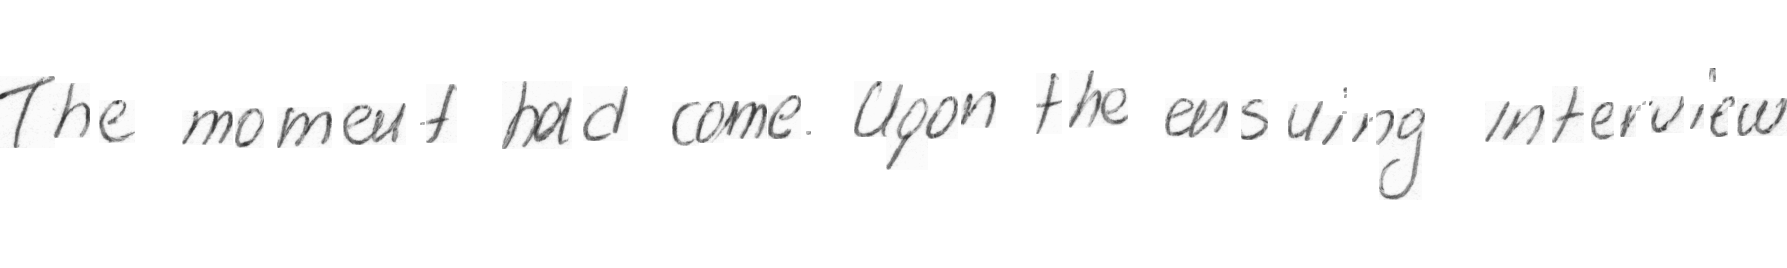 The moment had come. Upon the ensuing interview